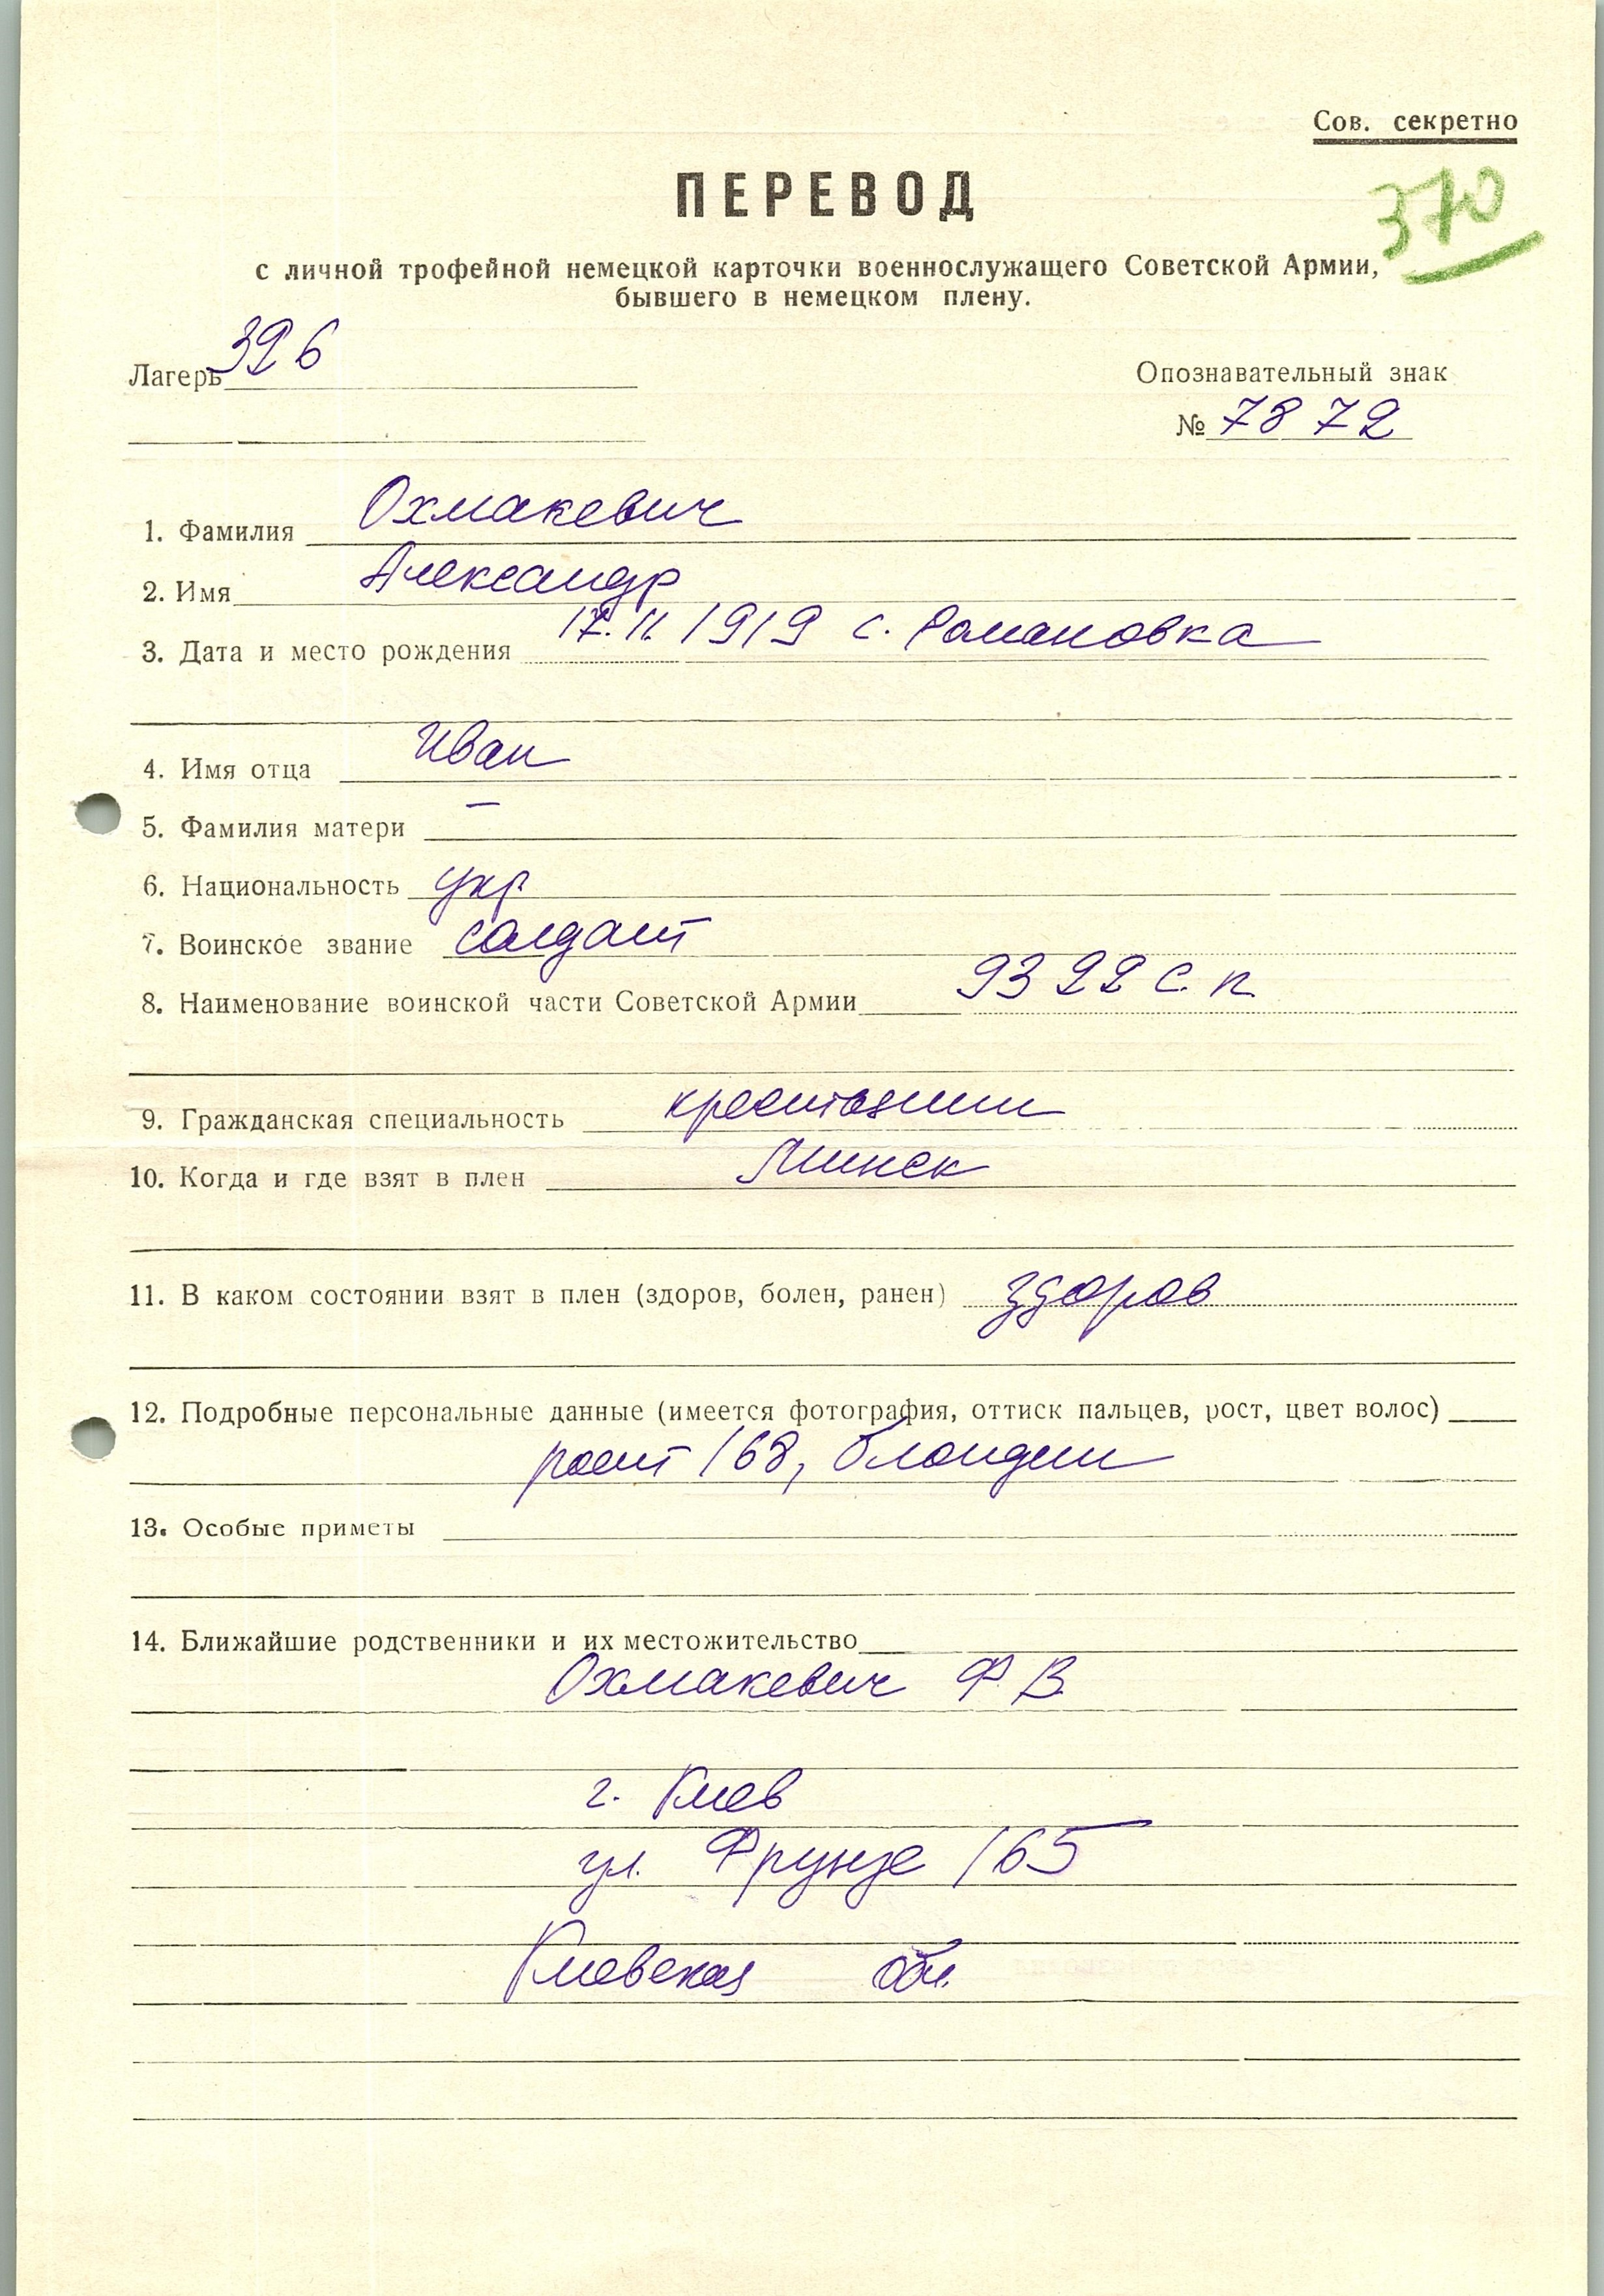 Сов. секретно
ПЕРЕВОД
370
с личной трофейной немецкой карточки военнослужащего Советской Армии,
бывшего в немецком плену.
Лагерь 326
Опознавательный знак
№ 7872
1. Фамилия Охмакевич
2. Имя Александр
3. Дата и место рождения 17.11.1919 с. Романовка
4. Имя отца Иван
5. Фамилия матери —
6. Национальность укр
7. Воинское звание солдат
8. Наименование воинской части Советской Армии 9322 с. п.
9. Гражданская специальность крестьянин
10. Когда и где взят в плен Минск
11. В каком состоянии взят в плен (здоров, болен, ранен) здоров
12. Подробные персональные данные (имеется фотография, оттиск пальцев, рост, цвет волос)
рост 168, блондин
13. Особые приметы
14. Ближайшие родственники и их местожительство
Охмакевич Ф. В.
г. Киев
ул. Фрунзе 165
Киевская обл.